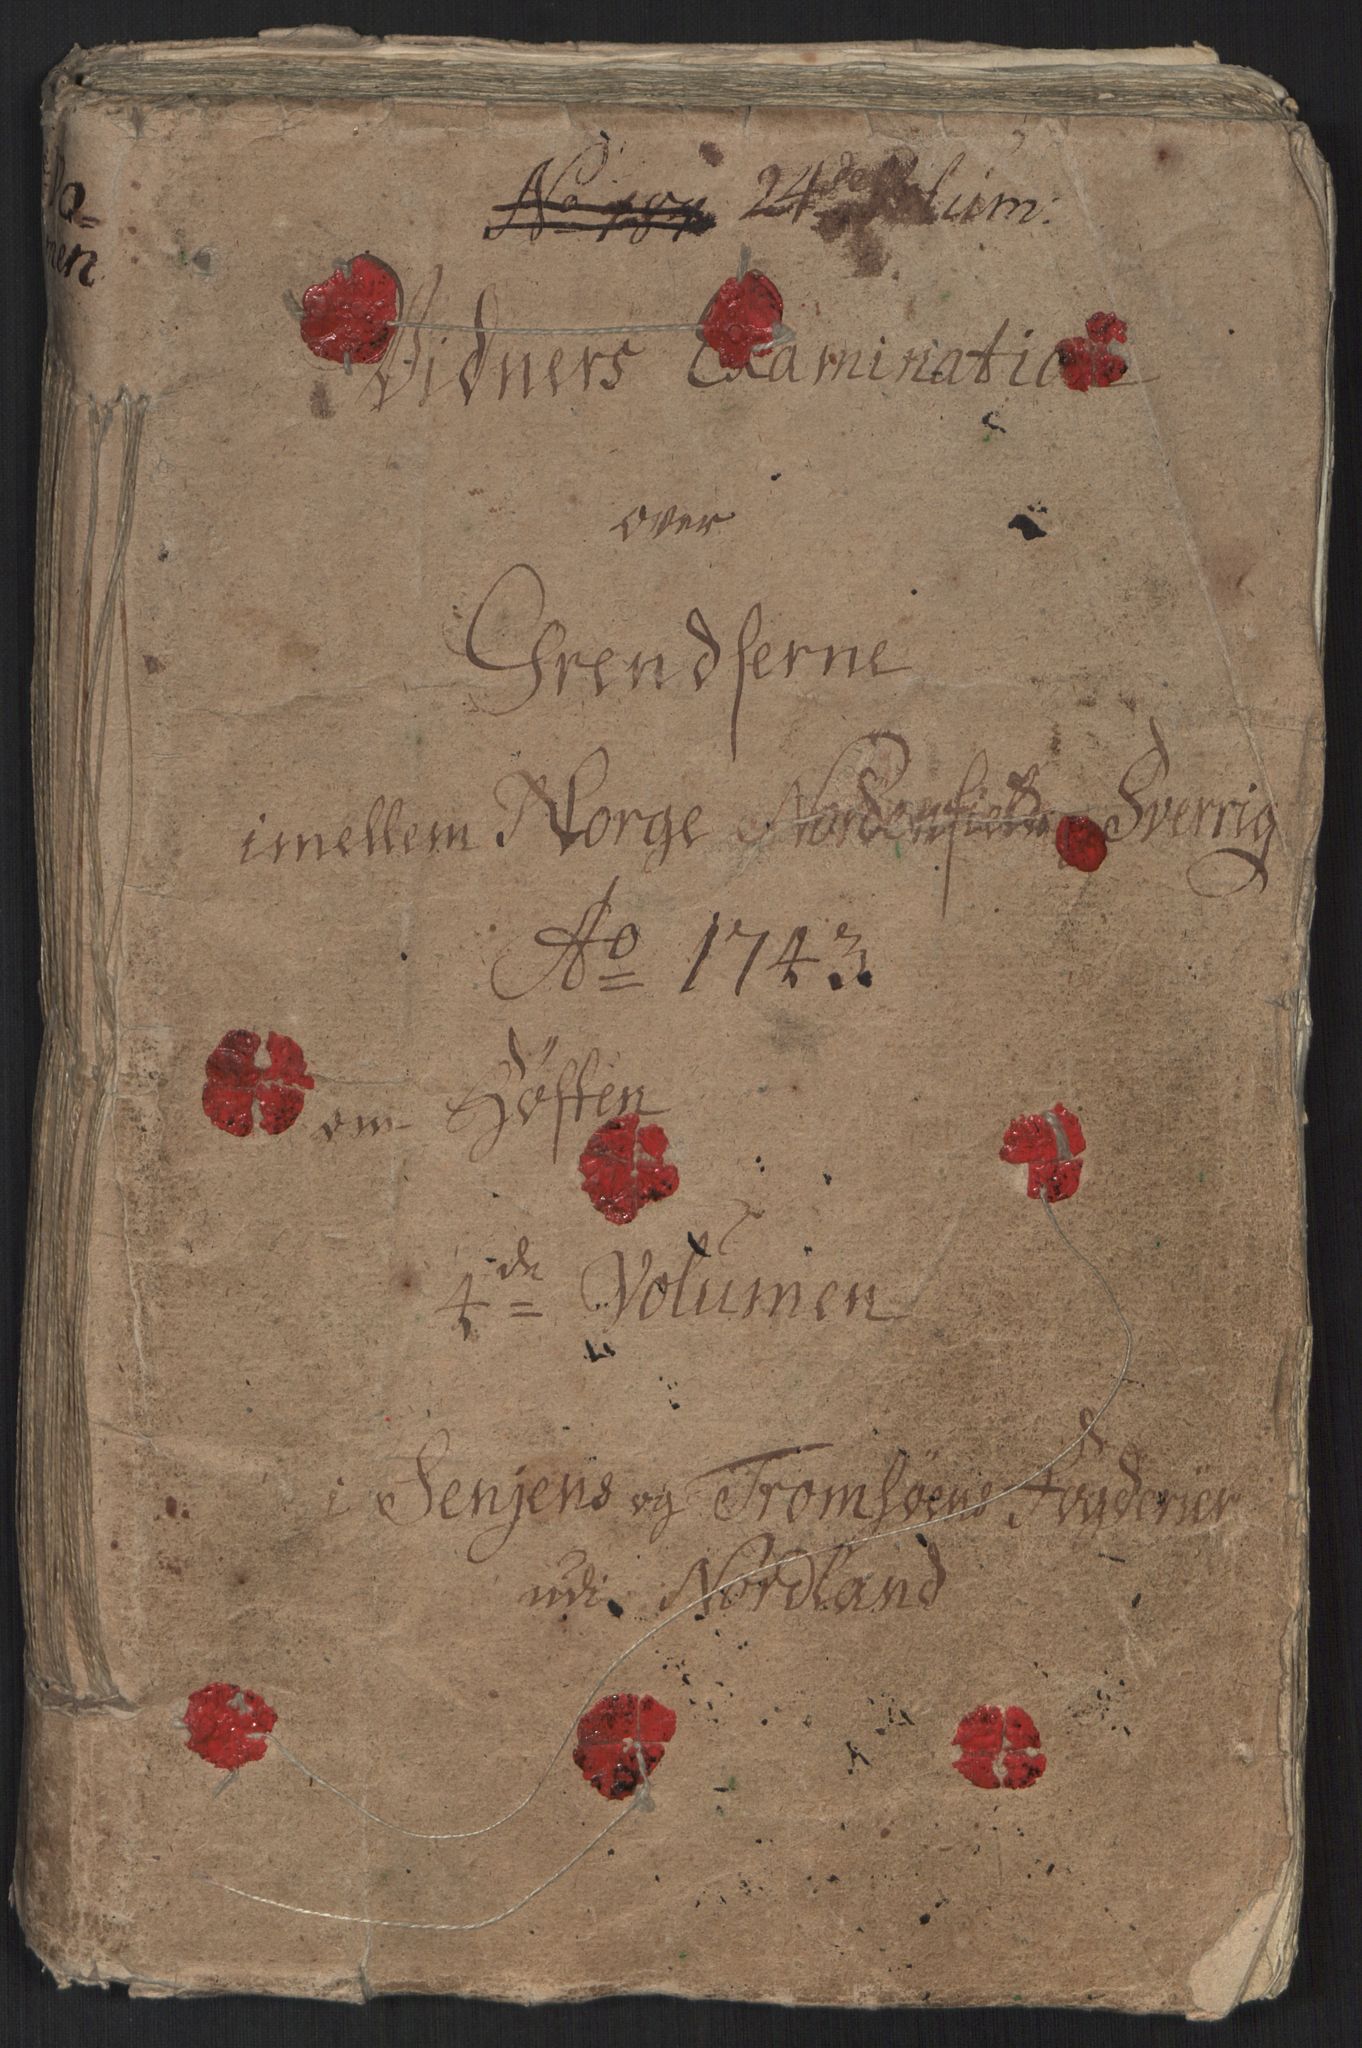 lo=
men
No 187 24de Volum:
Vidners Examination
over
Grendserne
imellem Norge Nordenfields Sverrig
Ao 1743
om Høsten
4de Volumen
i Senjens og Tromsøens Fogderier
udi Nordland